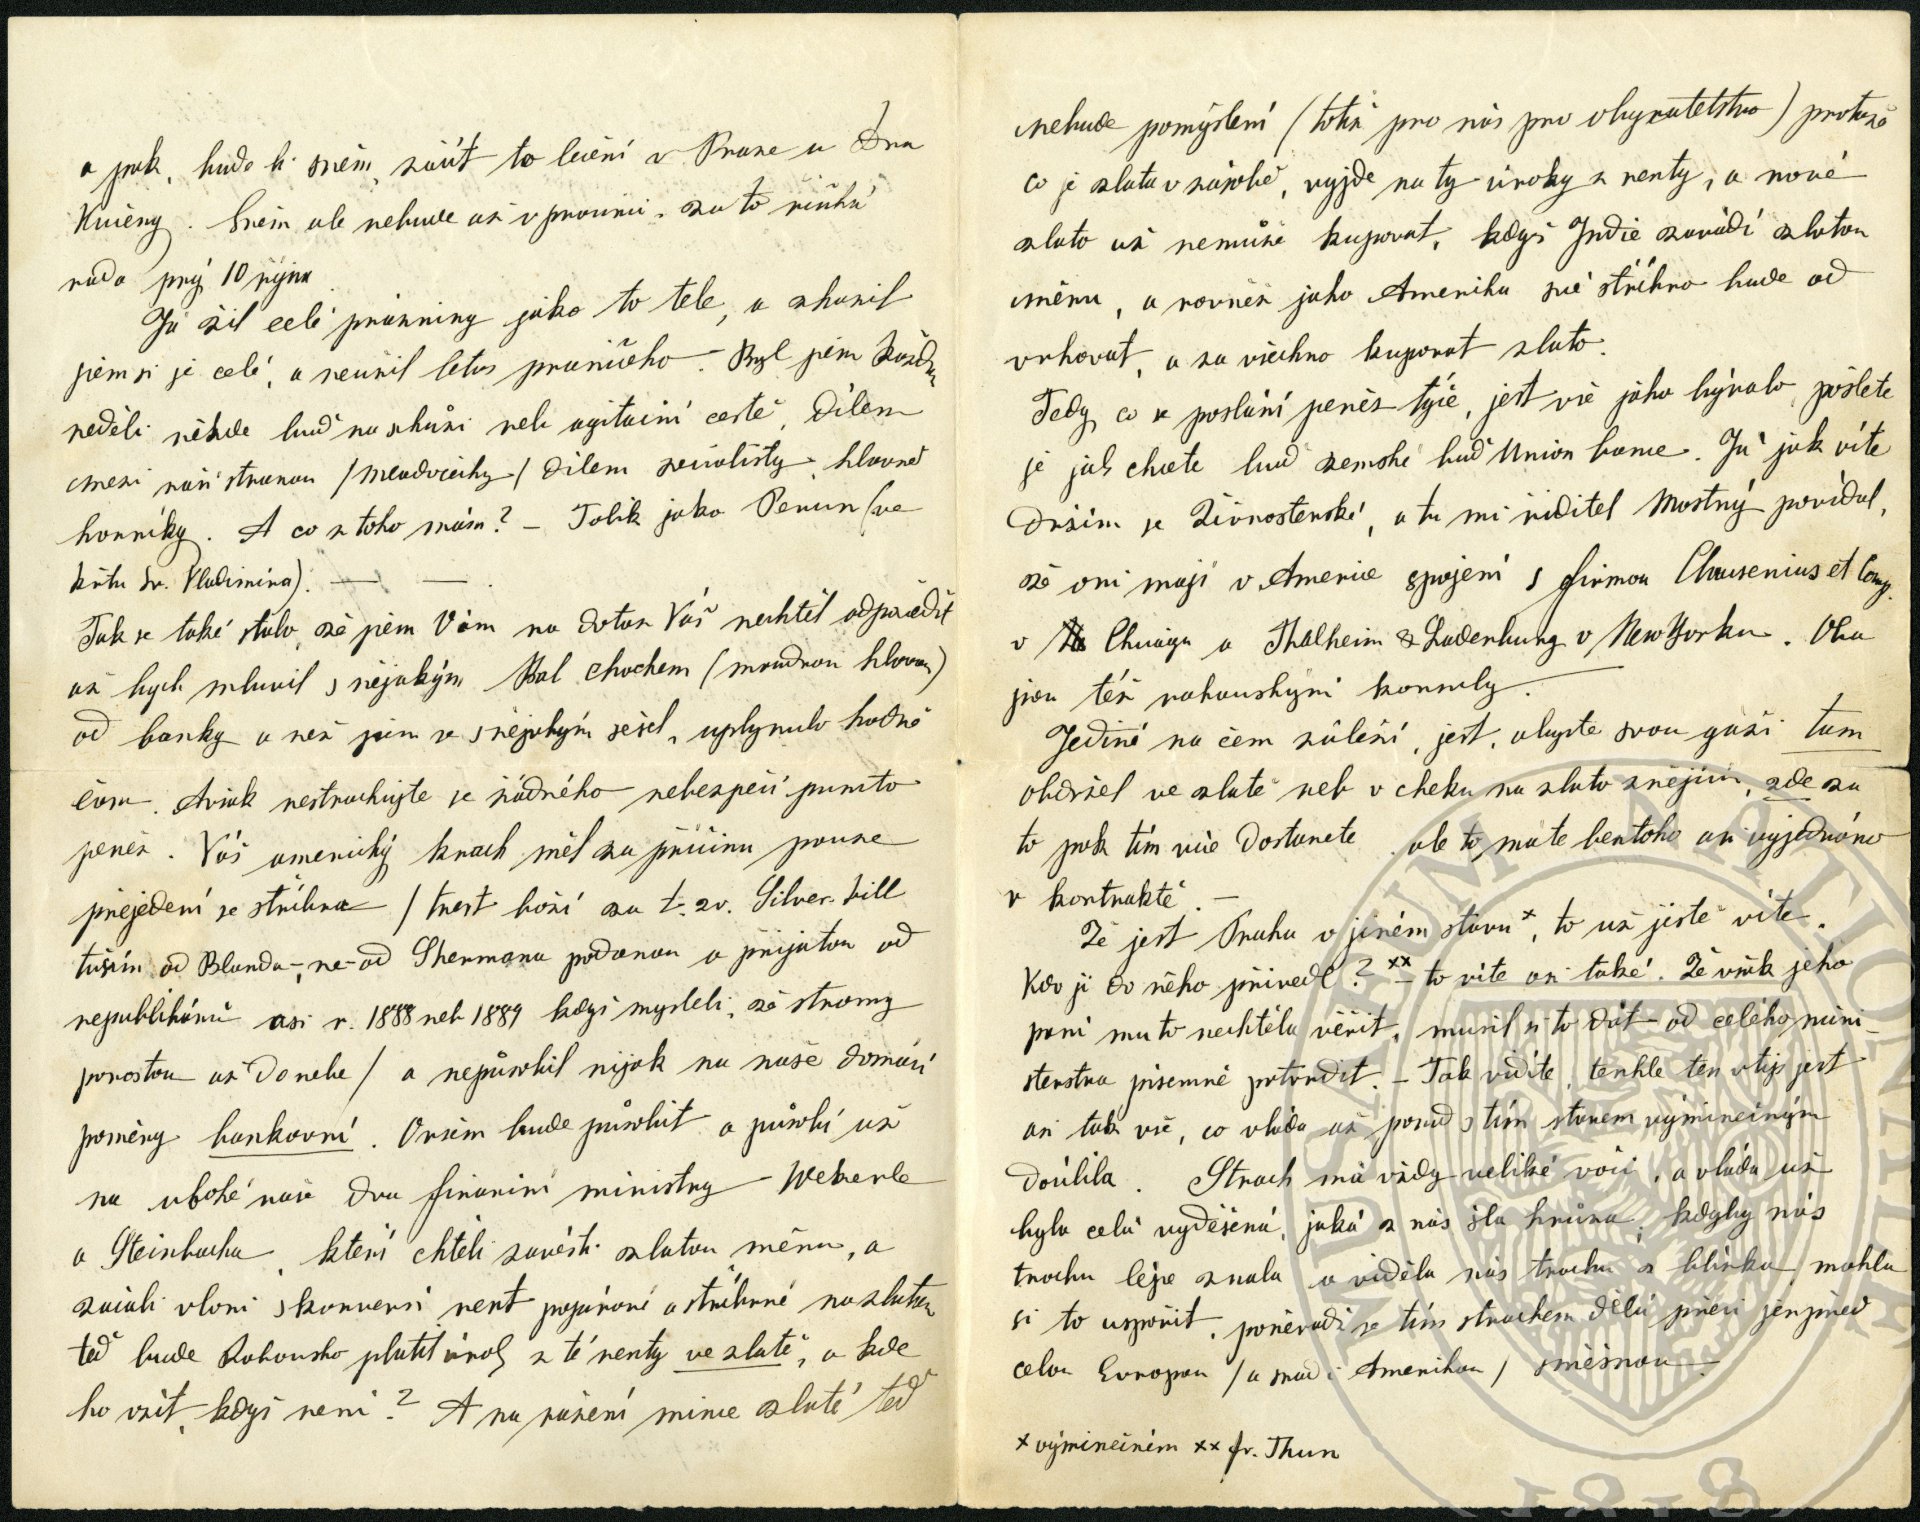 a pak, bude-li sněm, začít to léčení v Praze u Dra
Kučery. Sněm ale nebude až v prosinci, za to říšská
rada prý 10 října
Já žil celé prázniny jako to tele, a zkazil
jsem si je celé, a neužil letos praničeho. Byl jsem každou
neděli někde buď na schůzi neb agitační cestě, dílem
mezi naší stranou /mladočechy/ dílem socialisty hlavně
horníky. A co z toho mám? – Tolik jako Perun (ve
křtu sv. Vladimíra). — —.
Tak se také stalo, že jsem Vám na dotaz Váš nechtěl odpovědít
až bych mluvil s nějakým Bal Chochem (moudrou hlavou)
od banky a než jsem se s nějakým sešel, uplynulo hodně
času. Avšak nestrachujte se žádného nebezpečí punkto
peněz. Váš americký krach měl za příčinu pouze
přejedení se stříbra /trest boží za t. zv. Silver-bill
tuším od Blanda-, ne-od Shermana podanou a přijatou od
republikánů asi r. 1888 neb 1889 když mysleli, že stromy
porostou až do nebe/ a nepůsobil nijak na naše domácí
poměry bankovní. Ovšem bude působit a působí už
na ubohé naše dva finanční ministry Wekerle
a Steinbacha, kteří chtěli zavésti zlatou měnu, a
začali vloni s konversí rent papírové a stříbrné na zlatou
teď bude Rakousko platit úrok z té renty ve zlatě, a kde
ho vzít, když není? A na ražení mince zlaté teď
nebude pomyšlení (totiž pro nás pro obyvatelstvo) protože
co je zlata v zásobě, vyjde na ty úroky z renty, a nové
zlato už nemůže kupovat, když Indie zavádí zlatou
měnu, a rovněž jako Amerika své stříbro bude od
vrhovat, a za všechno kupovat zlato.
Tedy co se poslání peněz týče, jest vše jako bývalo, pošlete
je jak chcete buď zemské buď Union bance. Já jak víte
držím se Živnostenské, a tu mi ředitel Mostný povídal,
že oni mají v Americe spojení s firmou Clausenius et Comp.
v Chicagu a Thalheim & Ladenburg v New Yorku. Oba
jsou též rakouskými konsuly.
Jediné na čem záleží, jest, abyste svou gáži tam
obdržel ve zlatě neb v cheku na zlato znějícím, zde za
to pak tím více dostanete ale to máte beztoho asi vyjednáno
v kontraktě. –
Že jest Praha v jiném stavu x, to už jistě víte.
Kdo ji do něho přivedl? xx – to víte asi také. Že však jeho
paní mu to nechtěla věřit, musil si to dát od celého mini-
sterstva písemně potvrdit. – Tak vidíte, tenhle ten vtip jest
asi tak vše, co vláda až posud s tím stavem výminečným
docílila. Strach má vždy veliké voči, a vláda už
byla celá vyděšená, jaká z nás šla hrůza; kdyby nás
trochu lépe znala a viděla nás trochu z blízka, mohla
si to uspořit, poněvadž se tím strachem dělá přeci jen před
celou Evropou /a snad i Amerikou/ směšnou.
x výminečném xx hr. Thun